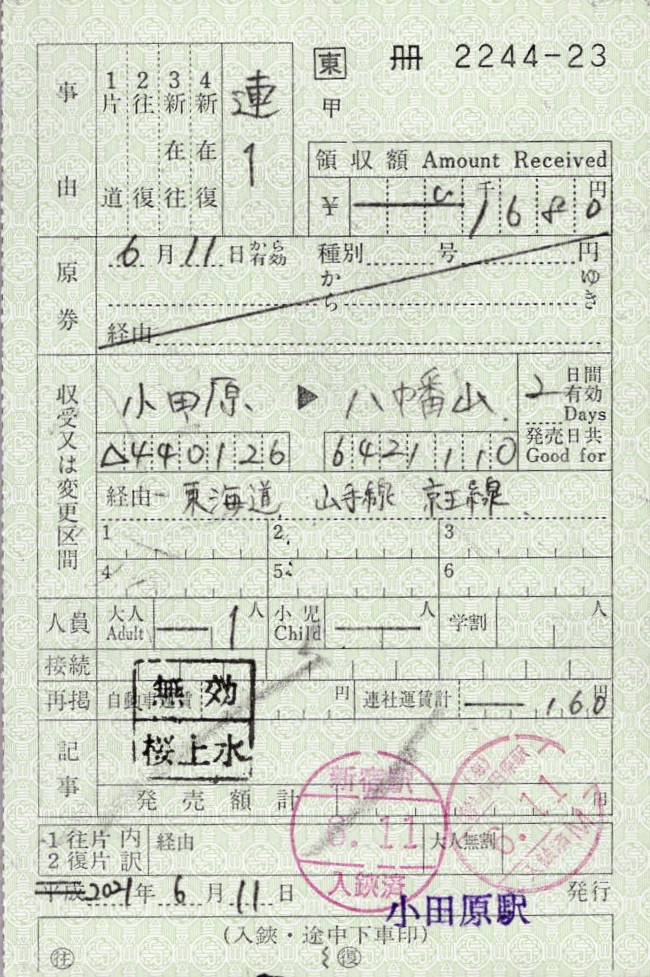 東 冊 2244-23
甲
事由
1片道
2往復
3新在往
4新在復
連1
領収額 Amount Received
¥ 千 円
1680
原券
6月11日から有効 種別 号 円
から ゆき
経由
収受又は変更区間
小田原 ▶ 八幡山
△440126 6421110
2日間有効
Days
発売日共
Good for
経由 東海道 山手線 京王線
1 2 3
4 5 6
人員 大人 Adult 1人 小児 Child 人 学割 人
接続
再掲 自動車運賃 円 連社運賃計 160円
無効
桜上水
記事
発売額計 円
新宿駅
6.11
入鋏済
小田原駅
6.11
入鋏済
1往片内
2復片訳
経由 大人無割
平成 2021年6月11日 発行
小田原駅
(入鋏・途中下車印)
往 復